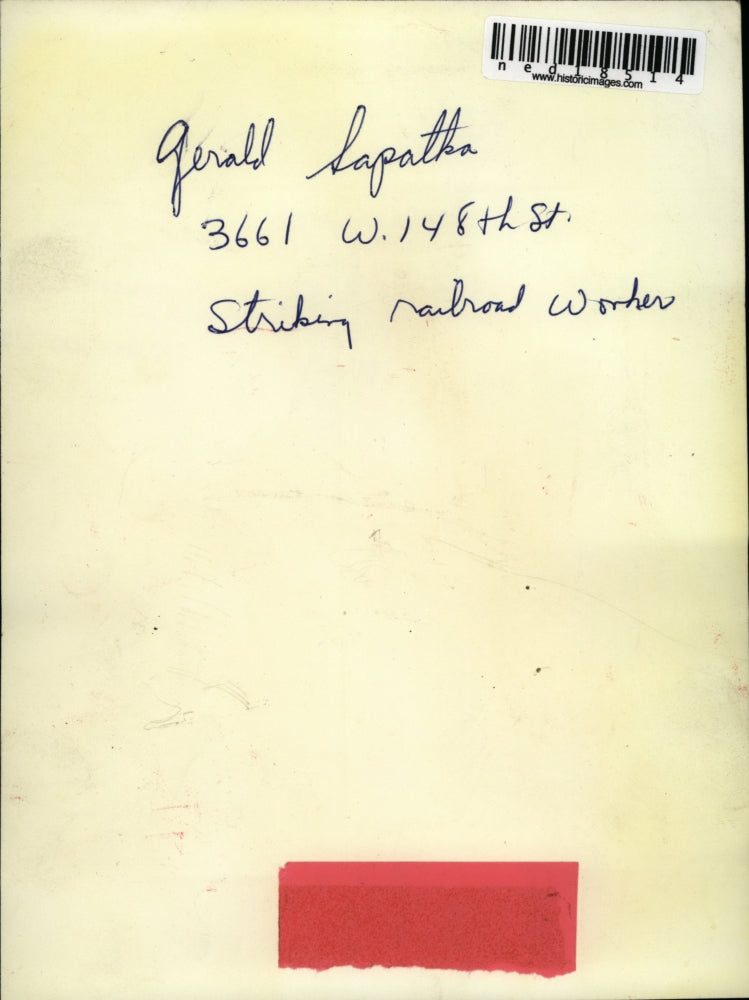 ned18514
www.historicimages.com
Gerald Sapatka
3661 W. 148th St.
Striking railroad worker